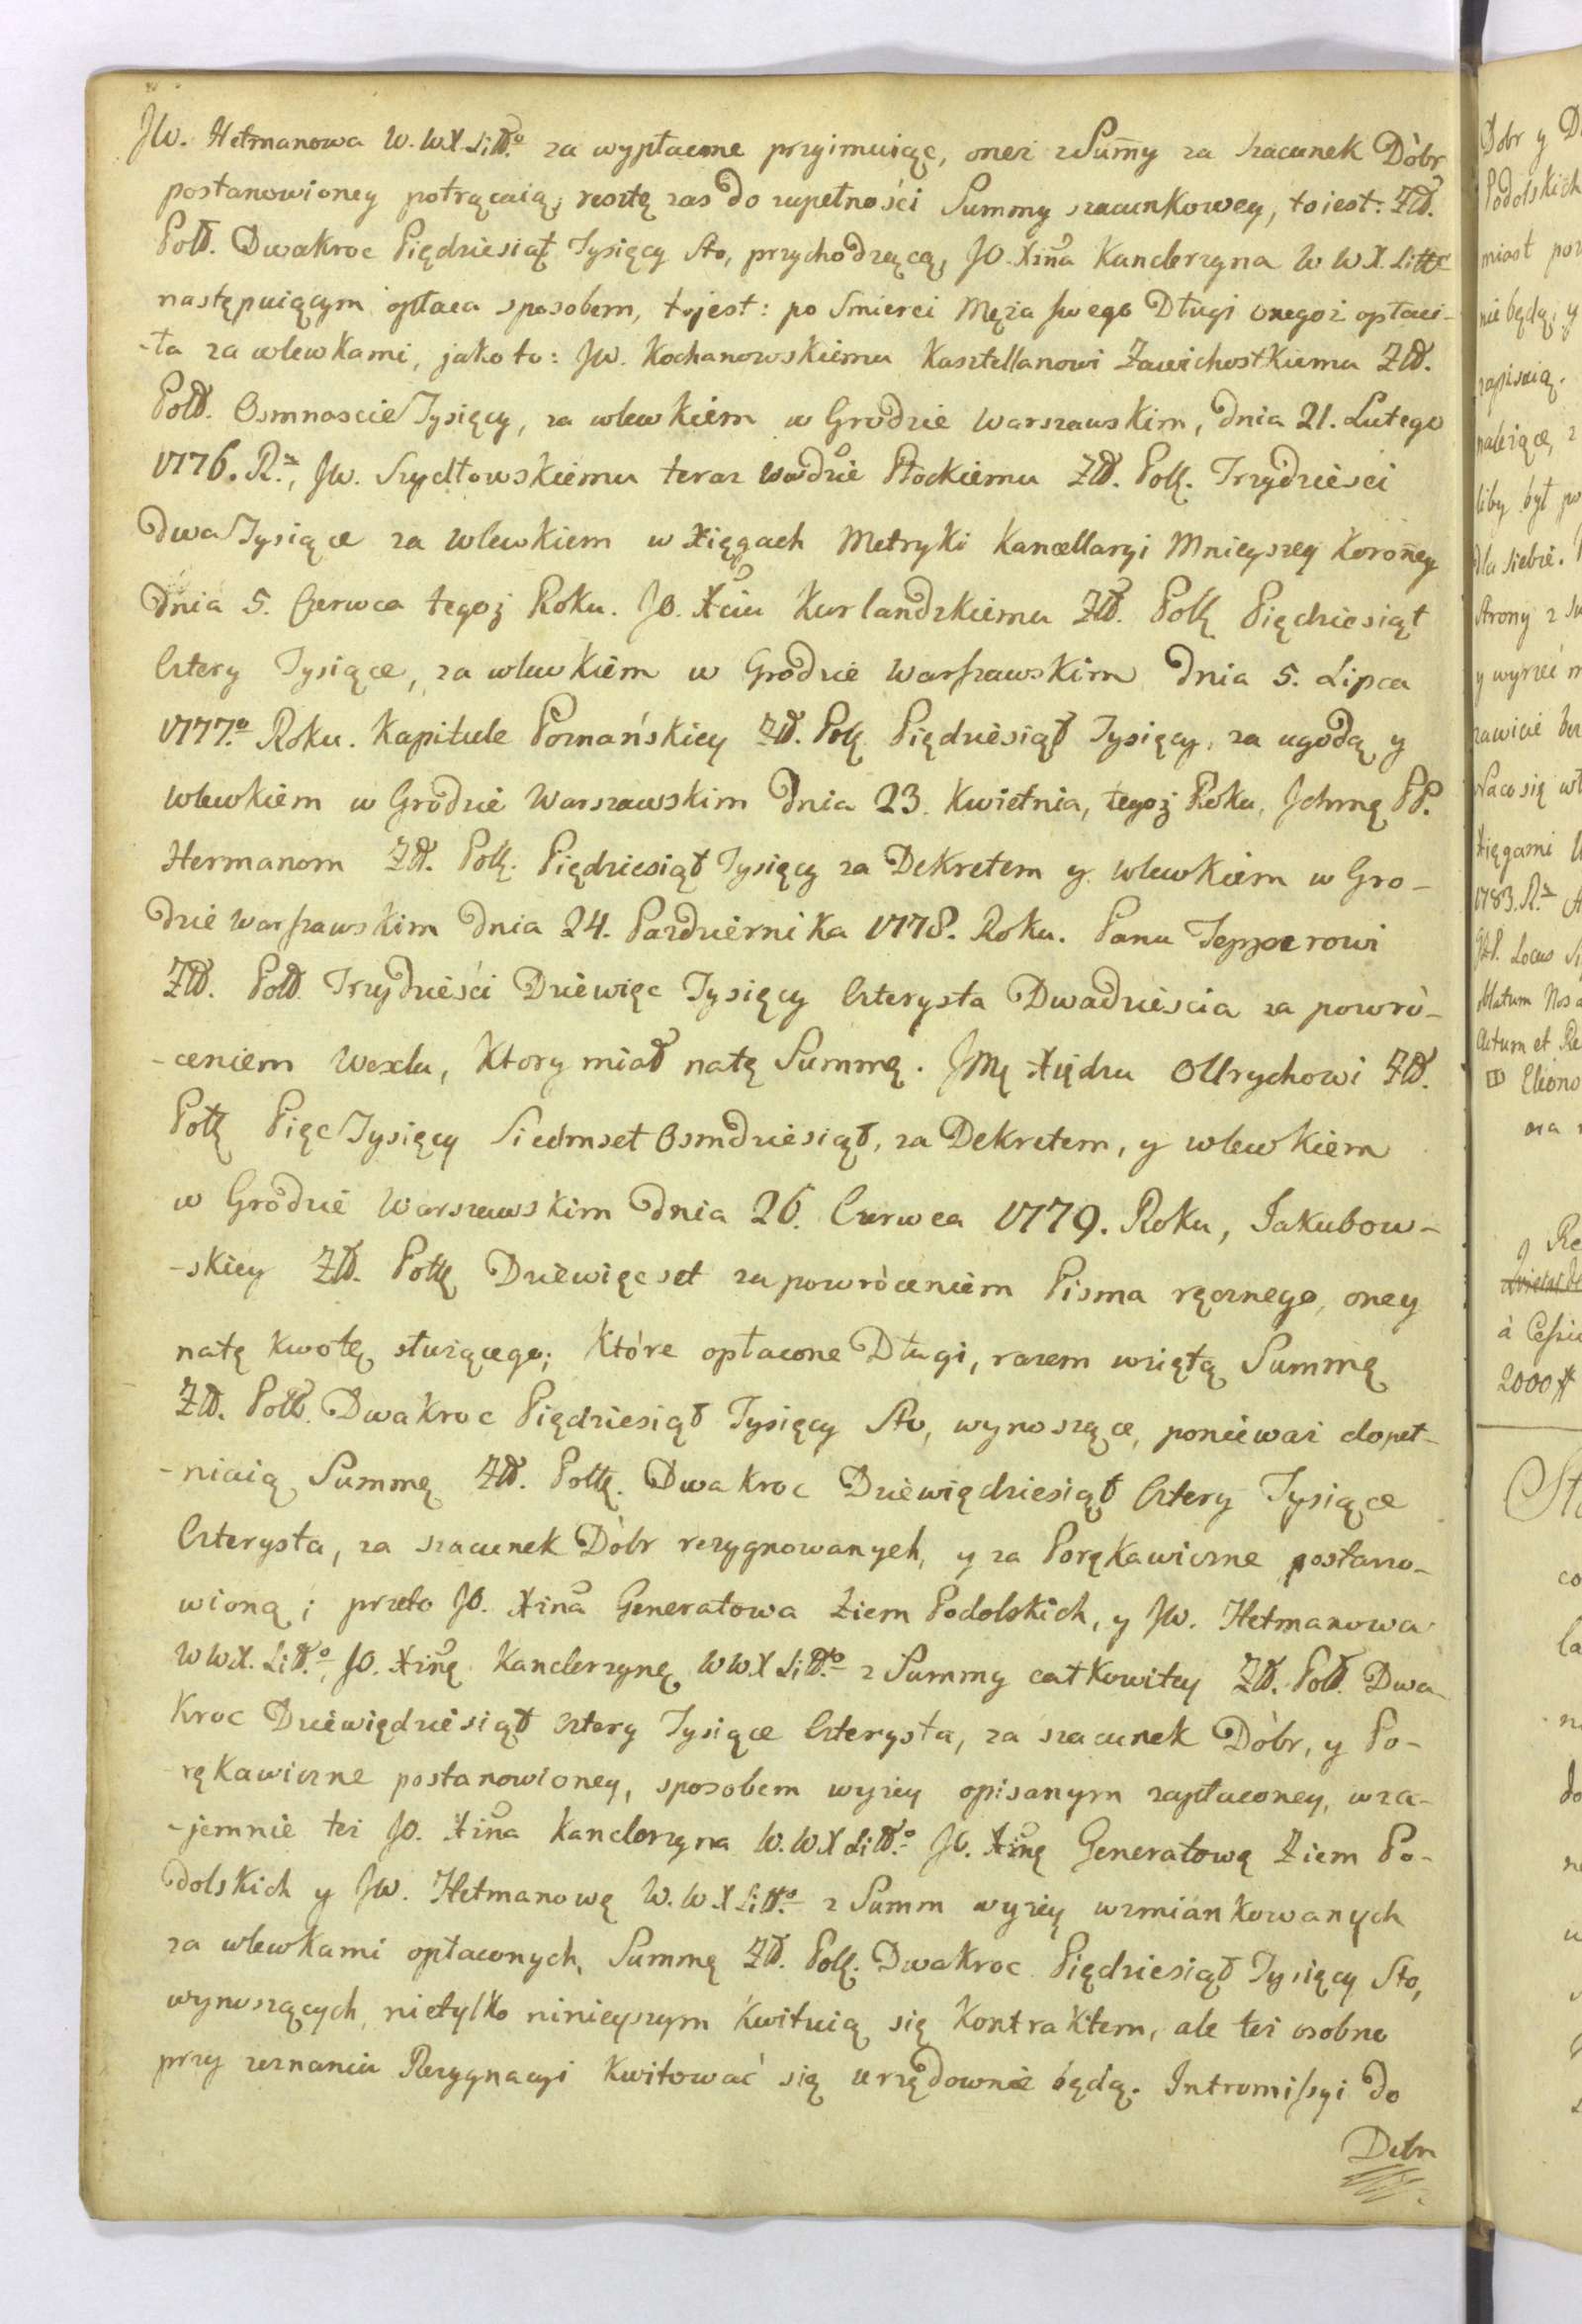 JW. Hetmanowa W. W X Litt.º za wypłacone przyimuiąc, oneż z Sum̄y za szacunek Dòbr
postanowioney potrącaią, resztę zas do zupełności Summy szacunkowey, to iest: Złł.
Poll. Dwakroc Piędziesiąt Tysięcy Sto, przychodzącą, JO. Xżna Kanclerzyna W W X. Litt
następuiącym opłaca sposobem, to jest: po Smierci Męża swego Długi onegoż opłaci-
-ła za wlewkami, jako to: JW. Kochanowskiemu Kasztellanowi Zawichostkiemu Złł.
Poll. Osmnascie Tysięcy, za wlewkiem w Grodzie Warszawskim, Dnia 21. Lutego
1776. R., JW. Szydłowskiemu teraz Wodzie Płockiemu Złł. Polł. Trzydzieści
Dwa Tysiące za wlewkiem w Xięgach Metryki Kancellaryi Mnieyszey Koron̄ey
Dnia 5. Czerwca tegoż Roku. JO. Xciu Kurlandzkiemu Złł. Polł Pięcdziesiąt
Cztery Tysiące, za wlewkiem w Grodzie Warszawskim Dnia 5. Lipca
1777.º Roku. Kapitule Poznańskiey Złł. Polł Piędziesiąt Tysięcy, za ugodą y
wlewkiem w Grodzie Warszawskim Dnia 23. Kwietnia, tegoż Roku, Jchmę PP.
Hermanom Złł. Polł. Pięćdziesiąt Tysięcy za Dekretem y wlewkiem w Gro-
dzie Warszawskim Dnia 24. Pazdziernika 1778. Roku. Panu Tepperowi
Złł. Poll. Trzydzieści Dziewięc Tysięcy Czterysta Dwadzieścia za powrò-
-ceniem Wexlu, Ktory miał natę Summę. JMę Xiędzu Ollrychowi Złł.
Polł Pięc Tysięcy Siedmset Osmdziesiąt, za Dekretem, y wlewkiem
w Grodzie Warszawskim Dnia 26. Czerwca 1779. Roku, Jakubow-
-skiey Złł. Polł Dziewięcset za powróceniem Pisma ręcznego, oney
natę Kwotę służącego; Które opłacone Długi, razem wziętą Summę
Złł. Poll. Dwakroc Piędziesiąt Tysięcy Sto, wynoszące, ponieważ dopeł-
-niaią Summę Złł. Polł. Dwakroc Dziewiędziesiąt Cztery Tysiące
Czterysta, za szacunek Dòbr rezygnowanych, y za Porękawiczne postano-
wioną; przeto JO. Xżna Generałowa Ziem Podolskich, y JW. Hetmanowa
W W X. Litt.º, JO. Xżnę Kanclerzynę W W X Litt.º z Summy całkowitey Złł. Poll. Dwa-
Kroc Dziewiędziesiąt Cztery Tysiące Czterysta, za szacunek Dòbr, y Po-
rękawiczne postanowioney, sposobem wyżey opisanym zapłaconey, wza-
-jemnie też JO. Xżna Kanclerzyna W. W X Litt.º JO. Xżnę Generałową Ziem Po-
dolskich y JW. Hetmanowę W. W. X Litt.º z Summ wyżey wzmiankowanych
za wlewkami opłaconych, Summę Złł. Polł. Dwakroc Piędziesiąt Tysięcy Sto,
wynoszących, nietylko ninieyszym Kwituią się Kontraktem, ale też osobno
przy zeznaniu Rezygnacyi Kwitować się urzędownie będą. Intromissyi do
Dobr